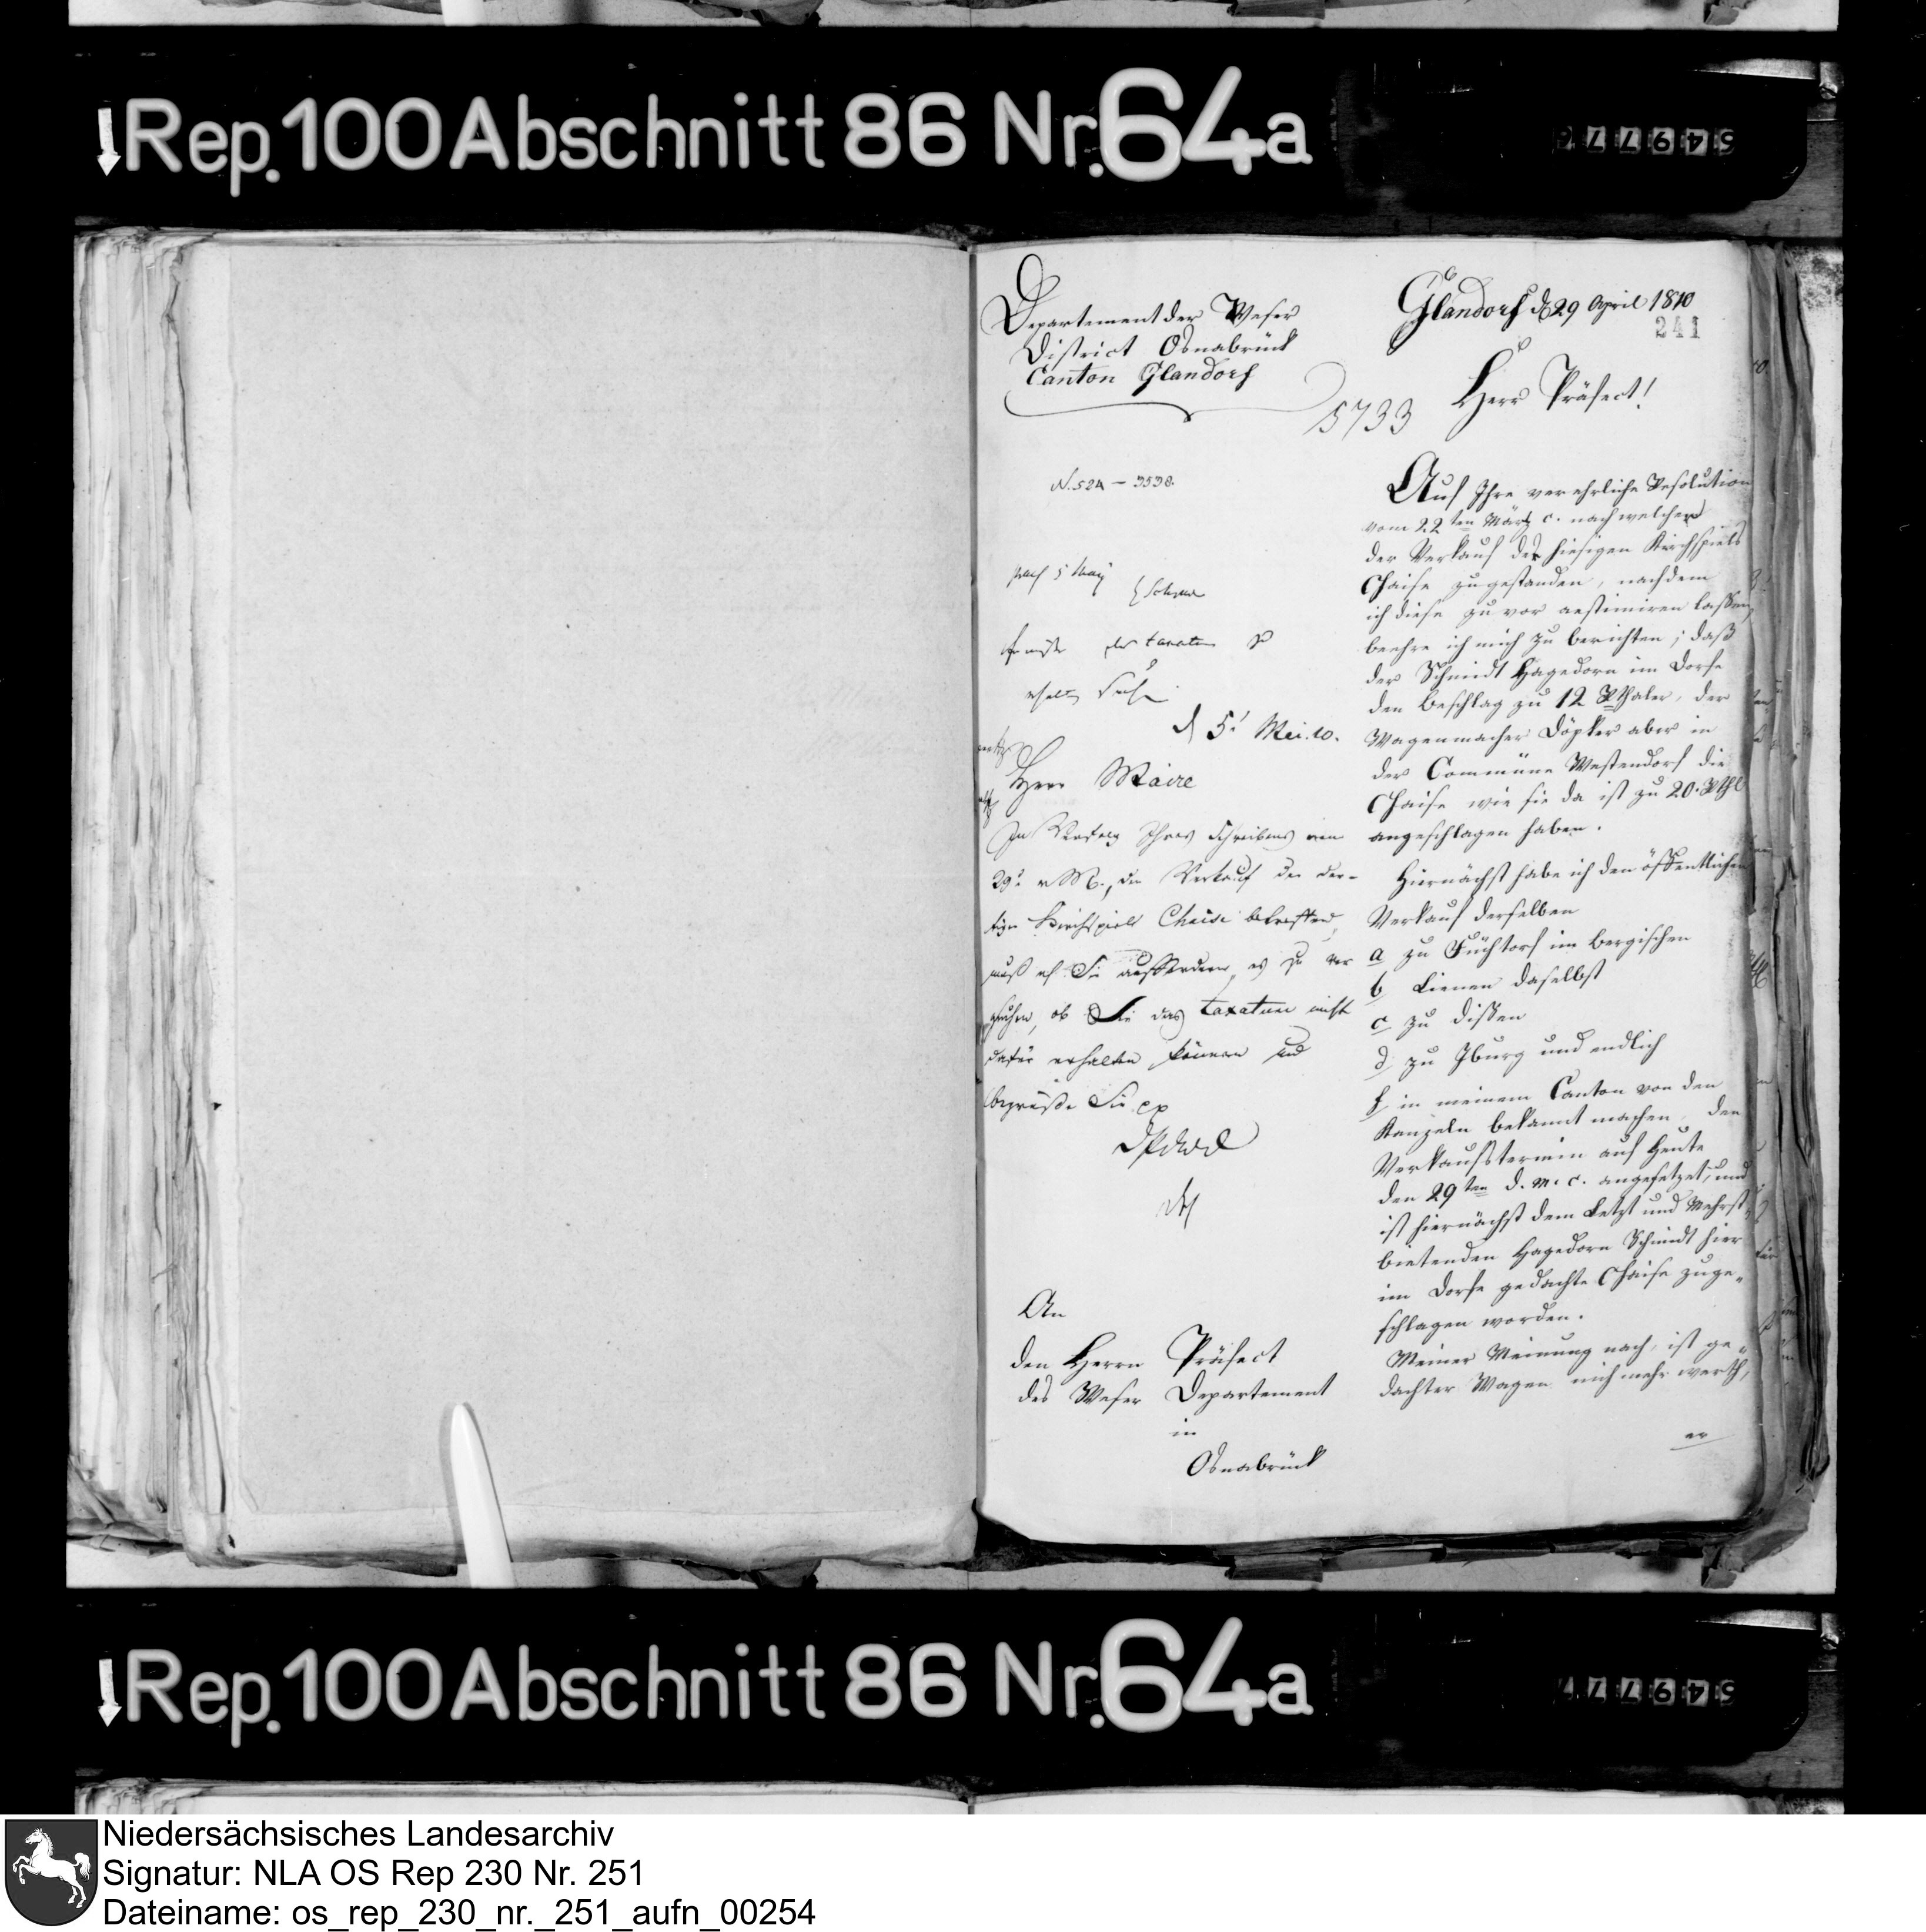 Rep. 100 Abschnitt 86 Nr. 64a
Departement der Weser
District Osnabrück
Canton Glandorf
Glandorf d 29 April 1810
241
5733
Herr Präfect!
N. 524 - 3538.
Auf Ihre verehrliche Resolution
vom 22ten Märtz c. nach welcher
der Verkauf der hiesigen Kirchspiels
Chaise zugestanden, nachdem
ich diese zu vor aestimiren lassen,
beehre ich mich zu berichten; daß
der Schmidt Hagedorn im Dorfe
den Beschlag zu 12 Rthaler, der
Wagenmacher Döpker aber in
der Commüne Westendorf die
Chaise wie sie da ist zu 20. Rthl
angeschlagen haben.
Hiernächst habe ich den öffentlichen
Verkauf derselben
a zu Füchtorf im Bergischen
b Lienen daselbst
c zu Dissen
d zu Iburg und endlich
f in meinem Canton von den
Kanzeln bekannt machen, den
Verkaufstermin auf Heute
den 29ten d. m. c. angesetzet, und
ist hiernächst dem Letzt und Mehrst-
bietenden Hagedorn Schmidt hier
im Dorfe gedachte Chaise zuge-
schlagen worden.
Meiner Meinung nach, ist ge-
dachter Wagen nich mehr werth,
er
5 May
d 5t Mei. 10.
Herr Maire
In Verfolg Ihres Schreibens vom
29t v. M., den Verkauf der dor-
tigen Kirchspiels Chaise betreffend,
muß ich Sie auffordern, es zu ver
suchen, ob Sie das taxatum nicht
dafür erhalten können und
begrüße Sie
An
den Herrn Präfect
des Weser Departement
in
Osnabrück
Rep. 100 Abschnitt 86 Nr. 64a
Niedersächsisches Landesarchiv
Signatur: NLA OS Rep 230 Nr. 251
Dateiname: os_rep_230_nr._251_aufn_00254